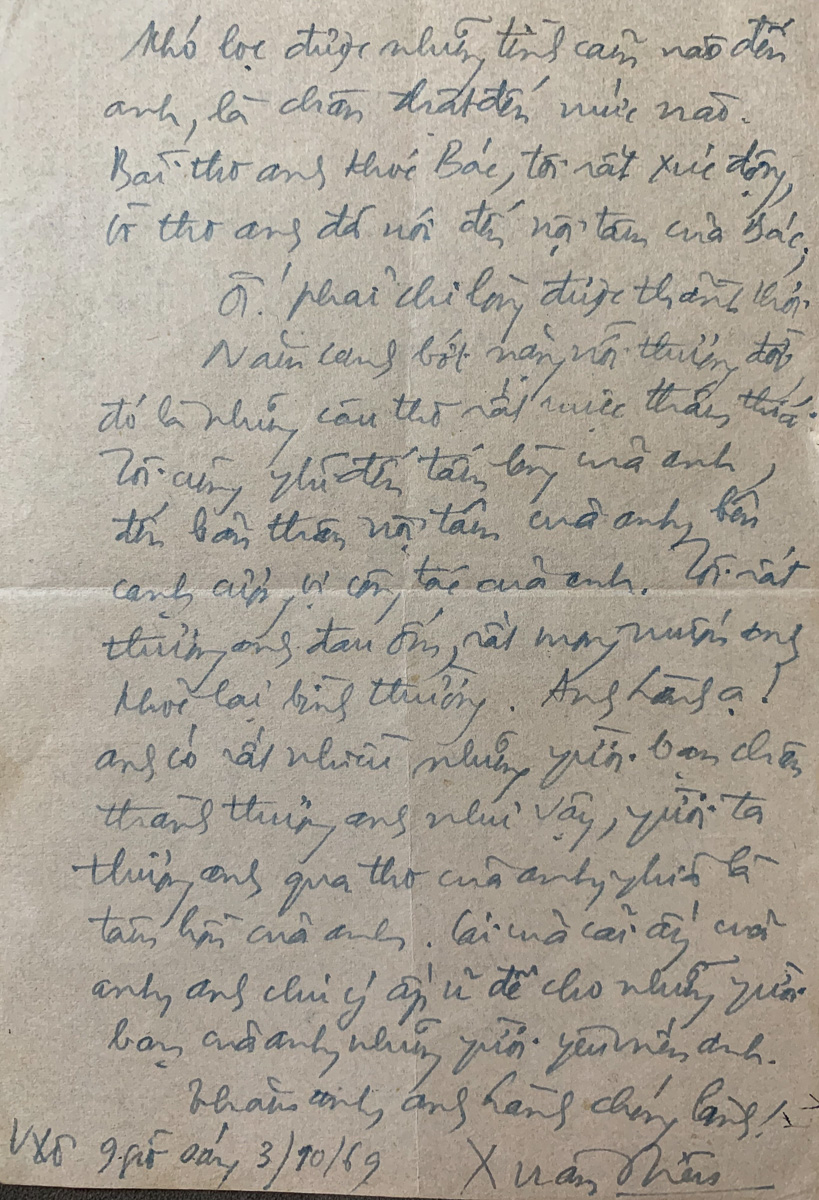 Khó lọc được những tình cảm nào đến
anh, là chân thật đến mức nào.
Bài thơ anh khóc Bác, tôi rất xúc động,
vì thơ anh đã nói đến nội tâm của Bác;
Ôi! phải chi lòng được thảnh thơi
Năm canh bớt nặng nỗi thương đời,
đó là những câu thơ rất mực thấm thía.
Tôi cũng nghĩ đến tấm lòng của anh,
đến bản thân nội tâm của anh, bên
cạnh cương vị công tác của anh. Tôi rất
thương anh đau ốm, rất mong muốn anh
khoẻ lại bình thường. Anh Lành ạ!
anh có rất nhiều những người bạn chân
thành thương anh như vậy, người ta
thương anh qua thơ của anh, nghĩa là
tâm hồn của anh. Cái của cải ấy của
anh, anh chú ý ấp ủ để cho những người
bạn của anh, những người yêu mến anh.
Thăm anh, anh Lành chóng lành!
9 giờ sáng 3/10/69 Xuân Diệu